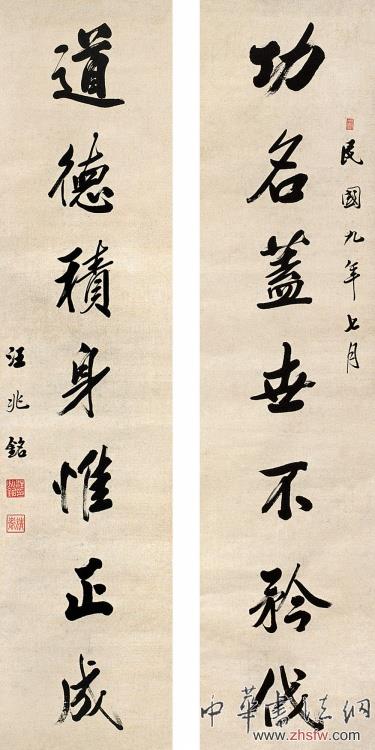 民國九年七月
功名蓋世不矜伐
道德積身惟正成
汪兆銘
中華書法網
www.zhsfw.com